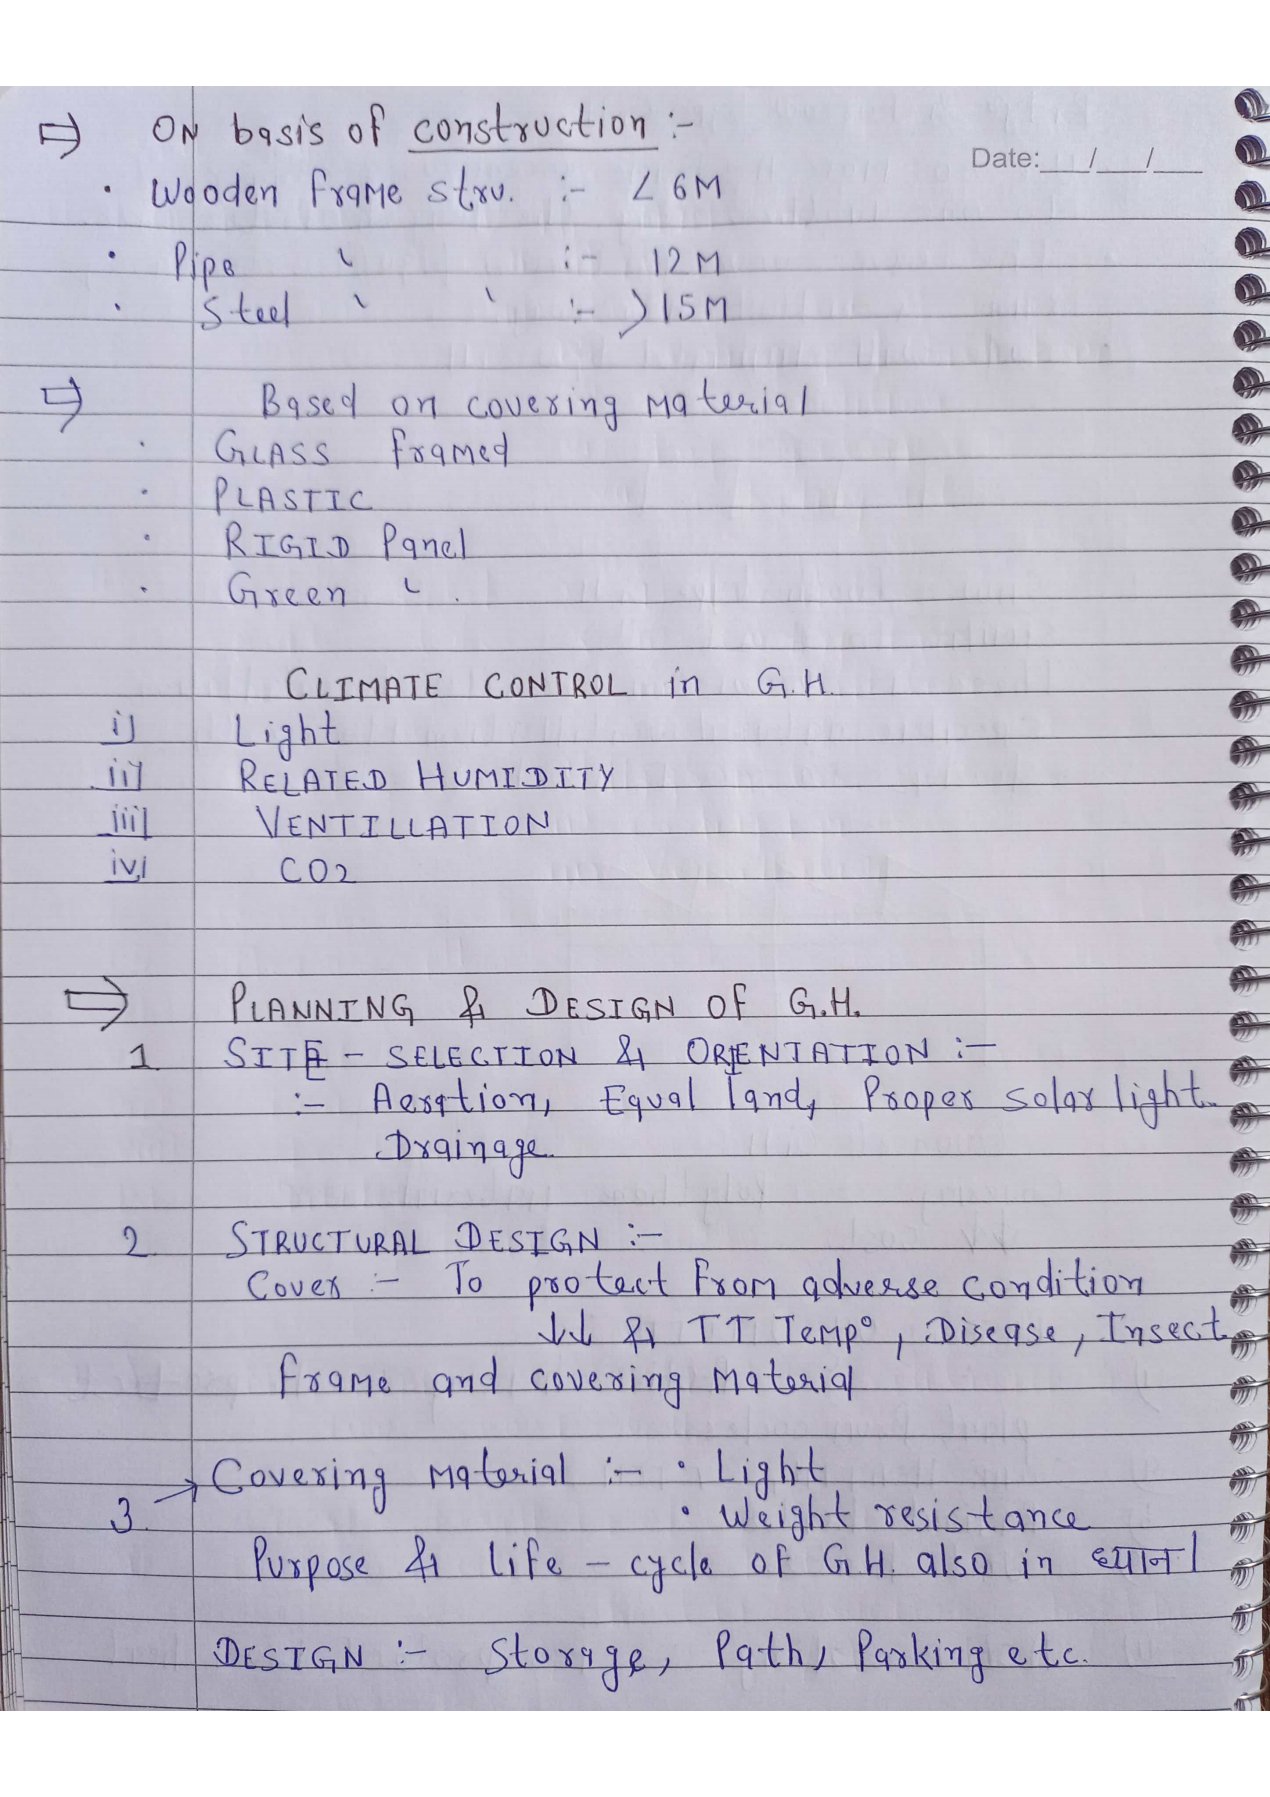 ⇒ ON basis of construction :-
Date: __/__/__
• Wooden frame stru. :- < 6M
• Pipe " :- 12M
• Steel " " :- >15M
⇒ Based on covering Material
• GLASS framed
• PLASTIC
• RIGID Panel
• Green " .
CLIMATE CONTROL in G.H.
i) Light
ii) RELATED HUMIDITY
iii) VENTILLATION
iv) CO2
⇒ PLANNING & DESIGN OF G.H.
1 SITE - SELECTION & ORIENTATION :-
:- Aeration, Equal land, Proper solar light.
Drainage.
2 STRUCTURAL DESIGN :-
Cover :- To protect from adverse condition
↓↓ & TT Temp°, Disease, Insect
frame and covering Material
3. → Covering Material :- • Light
• Weight resistance
Purpose & life - cycle of G.H. also in ध्यान।
DESIGN :- Storage, Path, Parking etc.